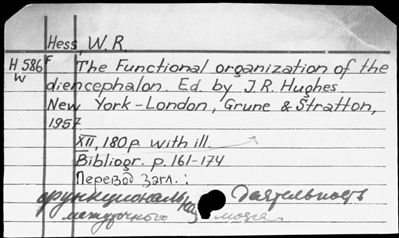 Hess, W. R.
H 586 F The Functional organization of the
W diencephalon. Ed. by J.R. Hughes.
New York-London, Grune & Stratton,
1957
XII, 180 p with ill.
Bibliogr. p. 161-174
Перевод загл.:
функциональная деятельность
межуточного мозга.